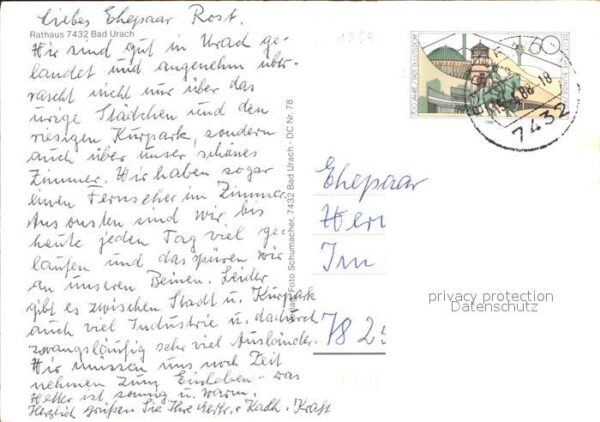 Liebes Ehepaar Rost.
Rathaus 7432 Bad Urach
Wir sind gut in Urach ge-
landet und angenehm über-
rascht nicht nur über das
urige Städchen und den
riesigen Kurpark, sondern
auch über unser schönes
Zimmer. Wir haben sogar
einen Fernseher im Zimmer
Ansonsten sind wir bis
heute jeden Tag viel ge-
laufen und das spüren wir
an unseren Beinen. Leider
gibt es zwischen Stadt u. Kurpark
auch viel Industrie u. dadurch
zwangsläufig sehr viel Ausländer.
Wir müssen uns noch Zeit
nehmen zum Einleben. Das
Wetter ist sonnig u. warm.
Herzlich grüßen Sie Ihre u. Kath. Kraft
Foto Schumacher, 7432 Bad Urach - DC Nr. 78
60
7432
Ehepaar
Her
Im
78 2
privacy protection
Datenschutz